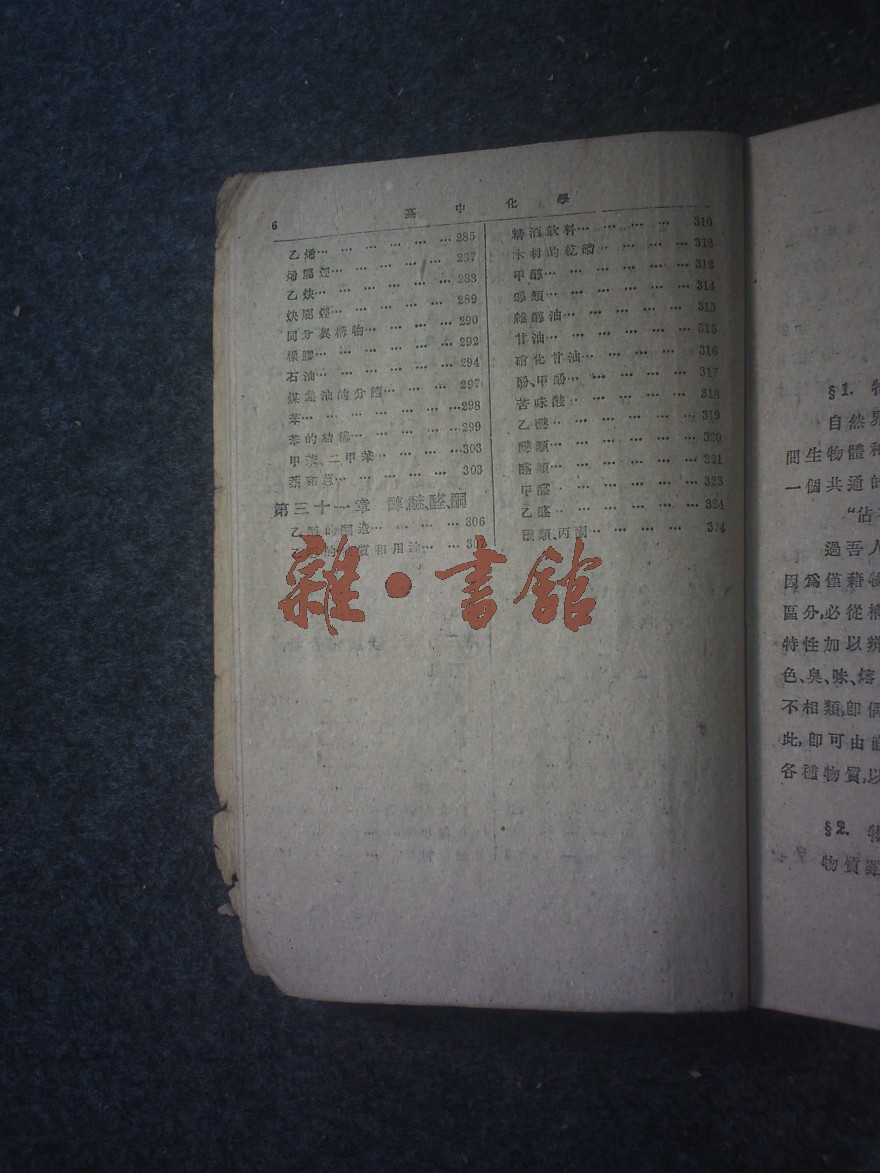 6
高中化學
乙烯… … … … … … …285
烯屬烴… … … … … …287
乙炔… … … … … … …288
炔屬烴… … … … … …289
同分異構物… … … … …290
橡膠… … … … … … …292
石油… … … … … … …294
煤焦油的分餾… … … …297
苯… … … … … … … …298
苯的結構… … … … … …299
甲苯、二甲苯… … … …303
萘和蒽… … … … … …303
第三十一章 醇、醚、醛、酮
乙醇的釀造… … … … 306
的 質和用途… … 30
精酒飲料… … … … … 310
木材的乾餾… … … … 312
甲醇… … … … … … … 312
醇類… … … … … … … 314
雜醇油… … … … … … 315
甘油… … … … … … … 315
硝化甘油… … … … … 316
酚、甲酚… … … … … 317
苦味酸… … … … … … 318
乙醚… … … … … … … 319
醚類… … … … … … … 320
醛類… … … … … … … 321
甲醛… … … … … … … 323
乙醛… … … … … … … 324
酮類、丙酮… … … … … 324
雜·書館
§1. 物
自然界
間生物體和
一個共通的
“佔
過吾人
因爲僅藉物
區分,必從構
特性加以辨
色、臭、味、熔
不相類,卽偶
此,卽可由
各種物質,以
§2. 物
物質雖